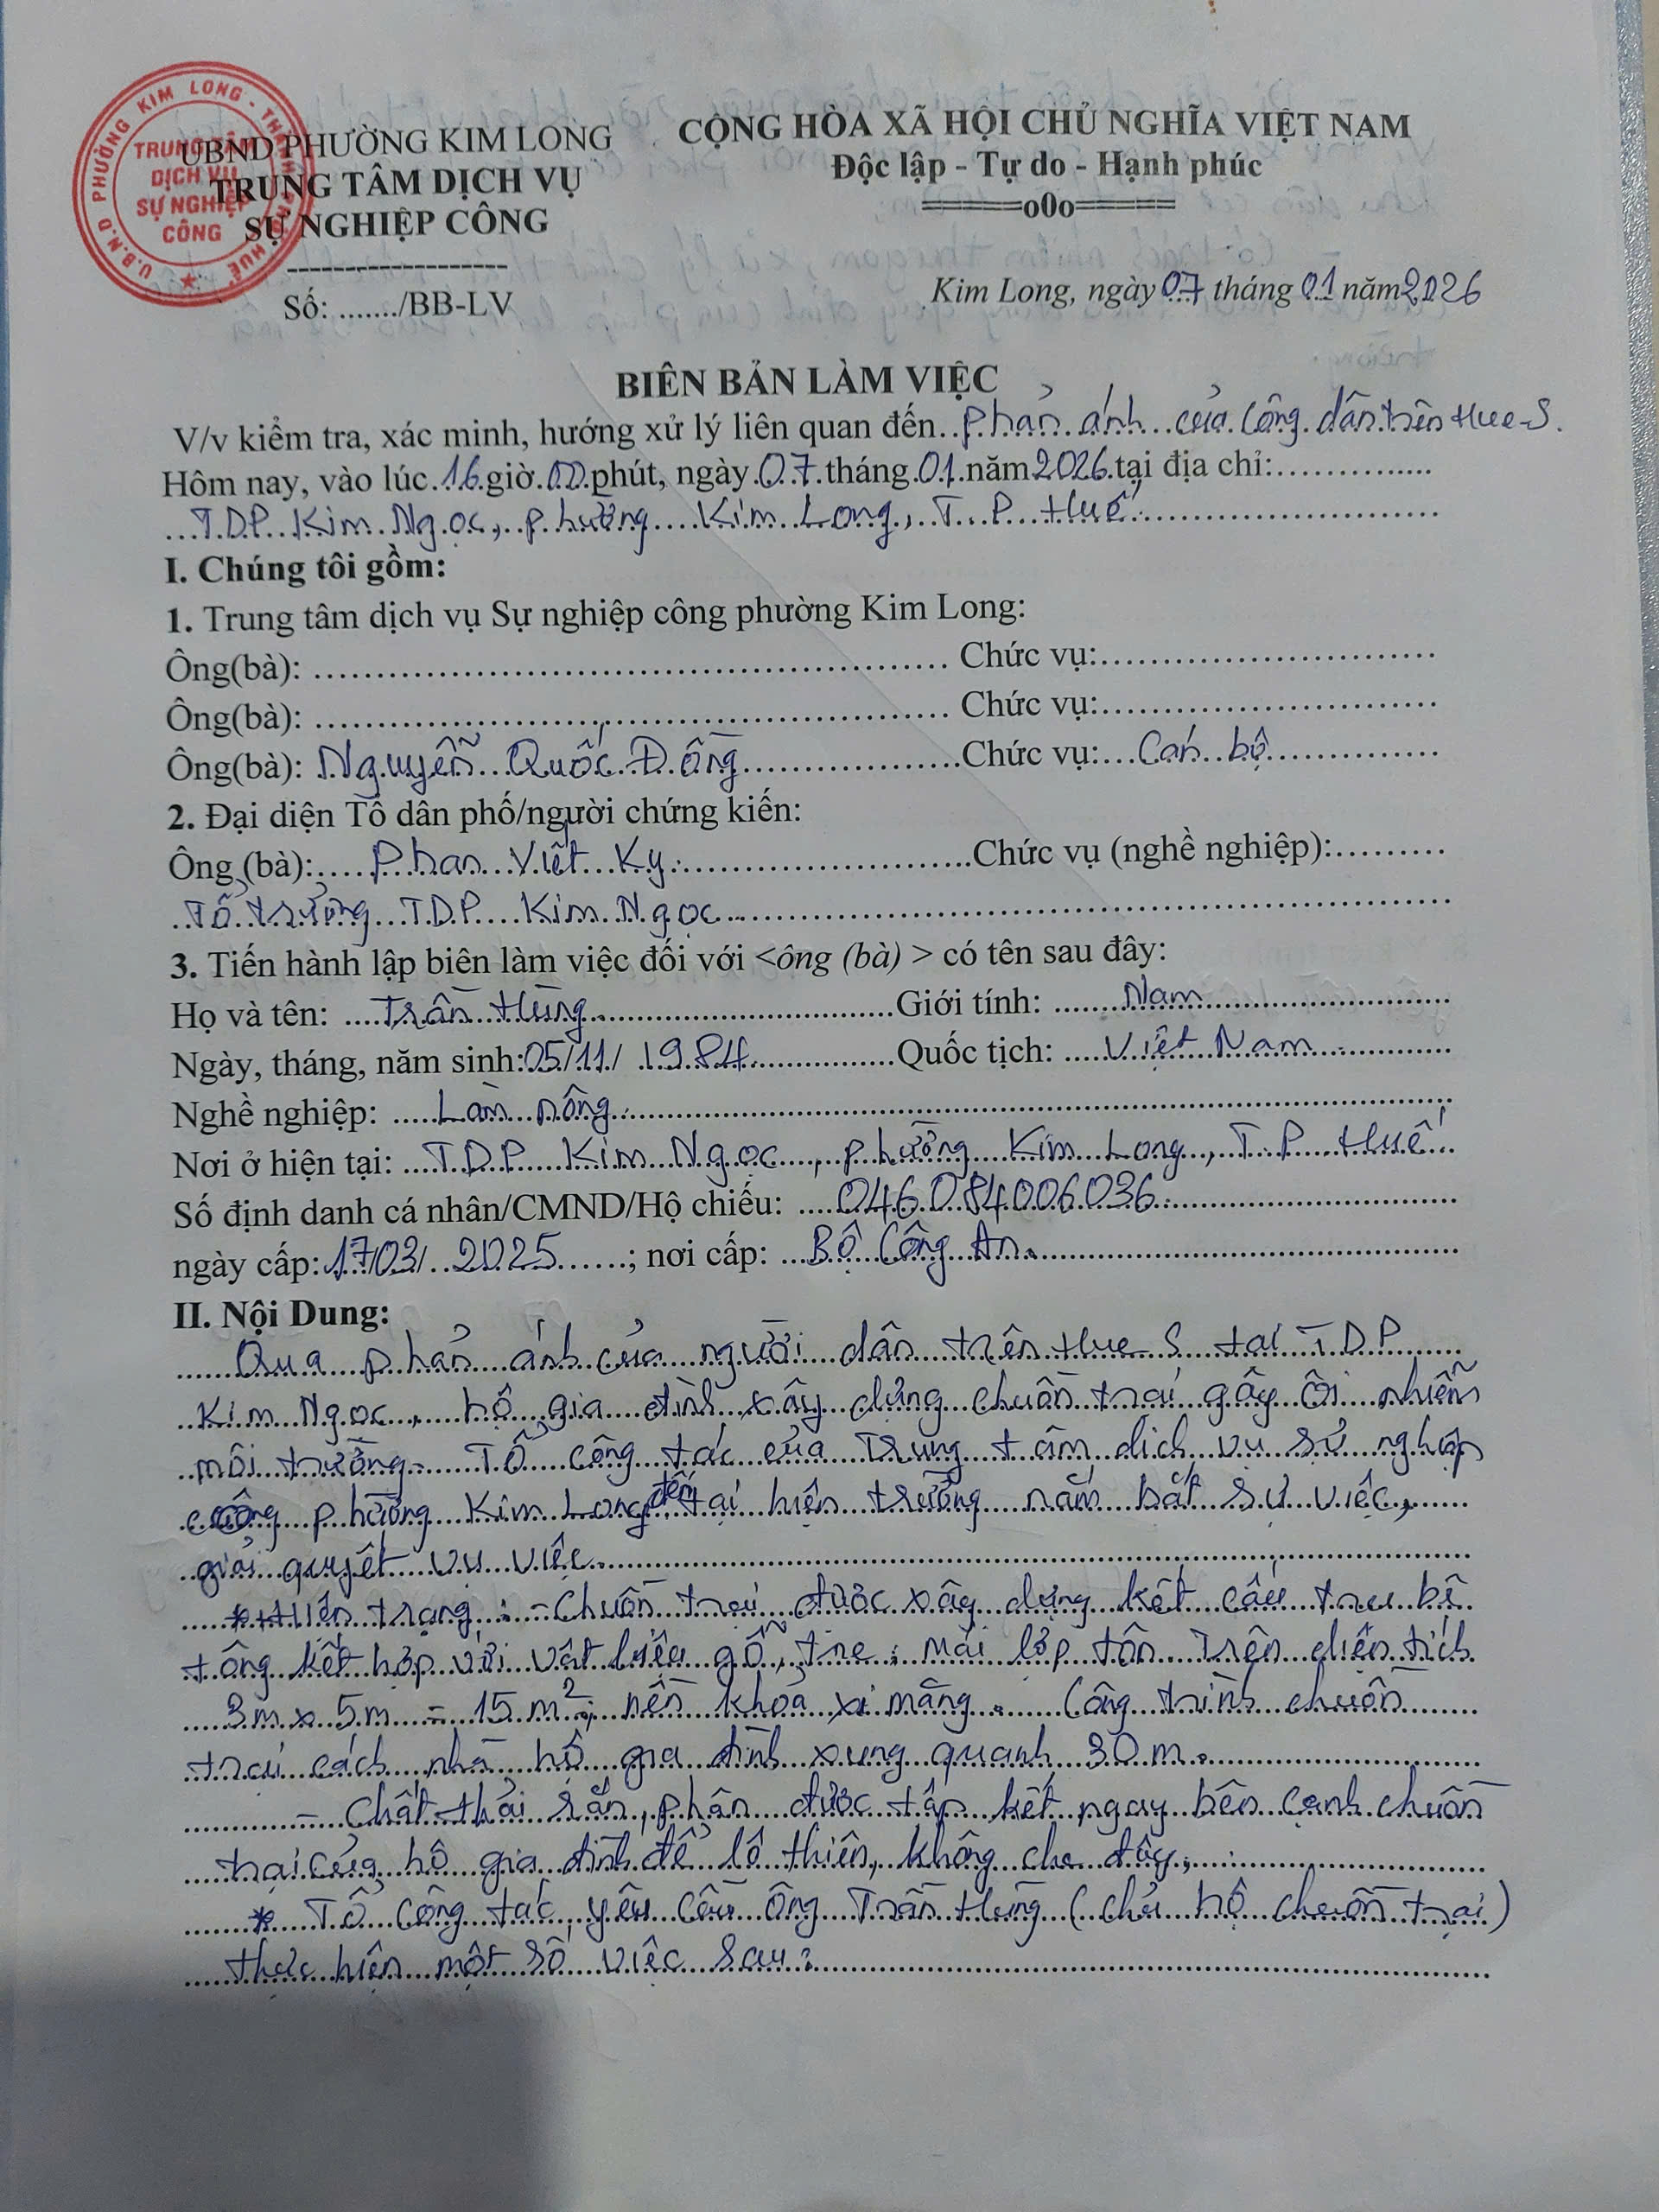 U.B.N.D PHƯỜNG KIM LONG - THÀNH PHỐ HUẾ
TRUNG TÂM
DỊCH VỤ
SỰ NGHIỆP
CÔNG
UBND PHƯỜNG KIM LONG
TRUNG TÂM DỊCH VỤ
SỰ NGHIỆP CÔNG
-------------------
Số: ......./BB-LV
CỘNG HÒA XÃ HỘI CHỦ NGHĨA VIỆT NAM
Độc lập - Tự do - Hạnh phúc
======o0o======
Kim Long, ngày 07 tháng 01 năm 2026
BIÊN BẢN LÀM VIỆC
V/v kiểm tra, xác minh, hướng xử lý liên quan đến phản ánh của công dân trên Hue-S.
Hôm nay, vào lúc 16 giờ 00 phút, ngày 07 tháng 01 năm 2026 tại địa chỉ:
TDP Kim Ngọc, phường Kim Long, T.P Huế
I. Chúng tôi gồm:
1. Trung tâm dịch vụ Sự nghiệp công phường Kim Long:
Ông(bà): ........ Chức vụ: ........
Ông(bà): ........ Chức vụ: ........
Ông(bà): Nguyễn Quốc Đồng Chức vụ: Cán bộ
2. Đại diện Tổ dân phố/người chứng kiến:
Ông (bà): Phan Viết Ky Chức vụ (nghề nghiệp):
Tổ trưởng TDP Kim Ngọc
3. Tiến hành lập biên làm việc đối với <ông (bà) > có tên sau đây:
Họ và tên: Trần Hùng Giới tính: Nam
Ngày, tháng, năm sinh: 05/11/ 1984 Quốc tịch: Việt Nam
Nghề nghiệp: Làm nông
Nơi ở hiện tại: TDP Kim Ngọc, phường Kim Long, T.P Huế
Số định danh cá nhân/CMND/Hộ chiếu: 046084006036
ngày cấp: 17/03/ 2025 ; nơi cấp: Bộ Công An
II. Nội Dung:
Qua phản ánh của người dân trên Hue-S tại TDP
Kim Ngọc, hộ gia đình xây dựng chuồn trại gây ôi nhiễm
môi trường. Tổ công tác của Trung tâm dịch vụ sự nghiệp
công phường Kim Long đến tại hiện trường nắm bắt sự việc,
giải quyết vụ việc.
* Hiện trạng: - Chuồn trại được xây dựng kết cấu trụ bê
tông kết hợp với vật liệu gỗ, tre; mái lợp tôn trên diện tích
3m x 5m = 15 m²; nền khỏa xi măng. Công trình chuồn
trại cách nhà hộ gia đình xung quanh 30 m.
- Chất thải rắn, phân được tập kết ngay bên cạnh chuồn
trại của hộ gia đình để lộ thiên, không che đậy;
* Tổ công tác yêu cầu ông Trần Hùng (chủ hộ chuồn trại)
thực hiện một số việc sau: